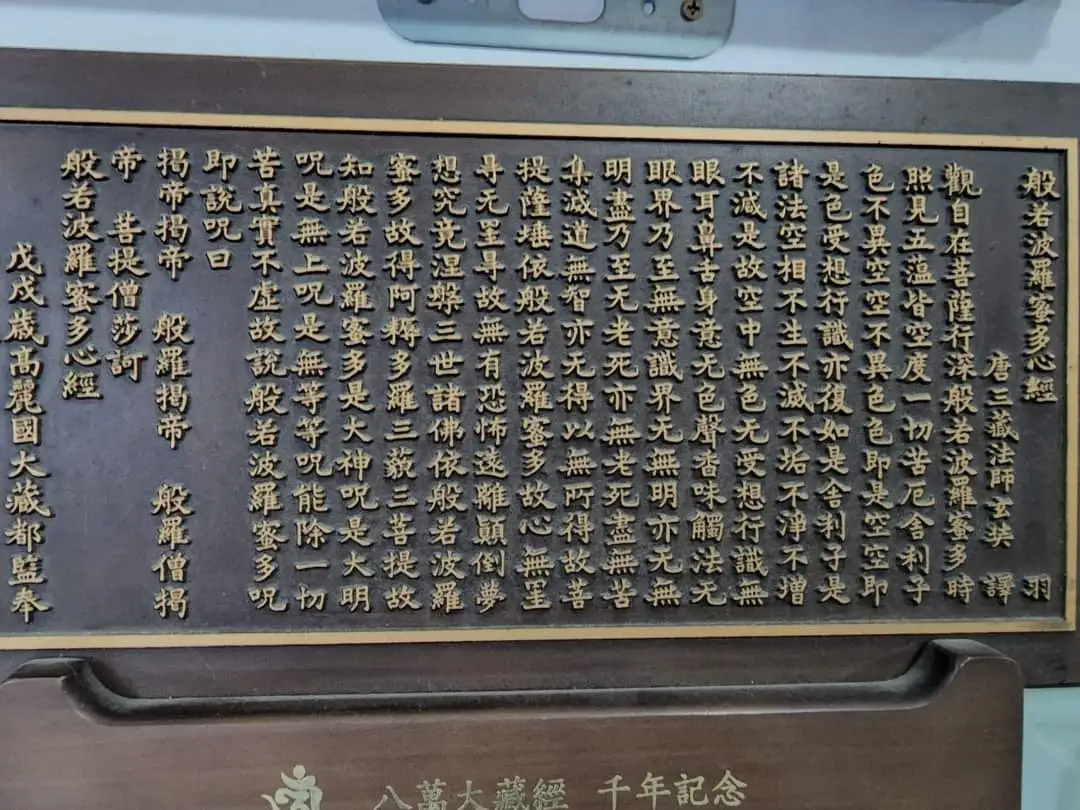 般若波羅蜜多心經 羽
唐三藏法師玄奘 譯
觀自在菩薩行深般若波羅蜜多時
照見五蘊皆空度一切苦厄舍利子
色不異空空不異色色即是空空即
是色受想行識亦復如是舍利子是
諸法空相不生不滅不垢不淨不增
不減是故空中無色无受想行識無
眼耳鼻舌身意无色聲香味觸法无
眼界乃至無意識界无無明亦无無
明盡乃至无老死亦無老死盡無苦
集滅道無智亦无得以無所得故菩
提薩埵依般若波羅蜜多故心無罣
㝵无罣㝵故無有恐怖遠離顛倒夢
想究竟涅槃三世諸佛依般若波羅
蜜多故得阿耨多羅三藐三菩提故
知般若波羅蜜多是大神呪是大明
呪是無上呪是無等等呪能除一切
苦真實不虛故說般若波羅蜜多呪
即說呪曰
揭帝揭帝 般羅揭帝 般羅僧揭
帝 菩提僧莎訶
般若波羅蜜多心經
戊戌歲高麗國大藏都監奉
八萬大藏經 千年記念